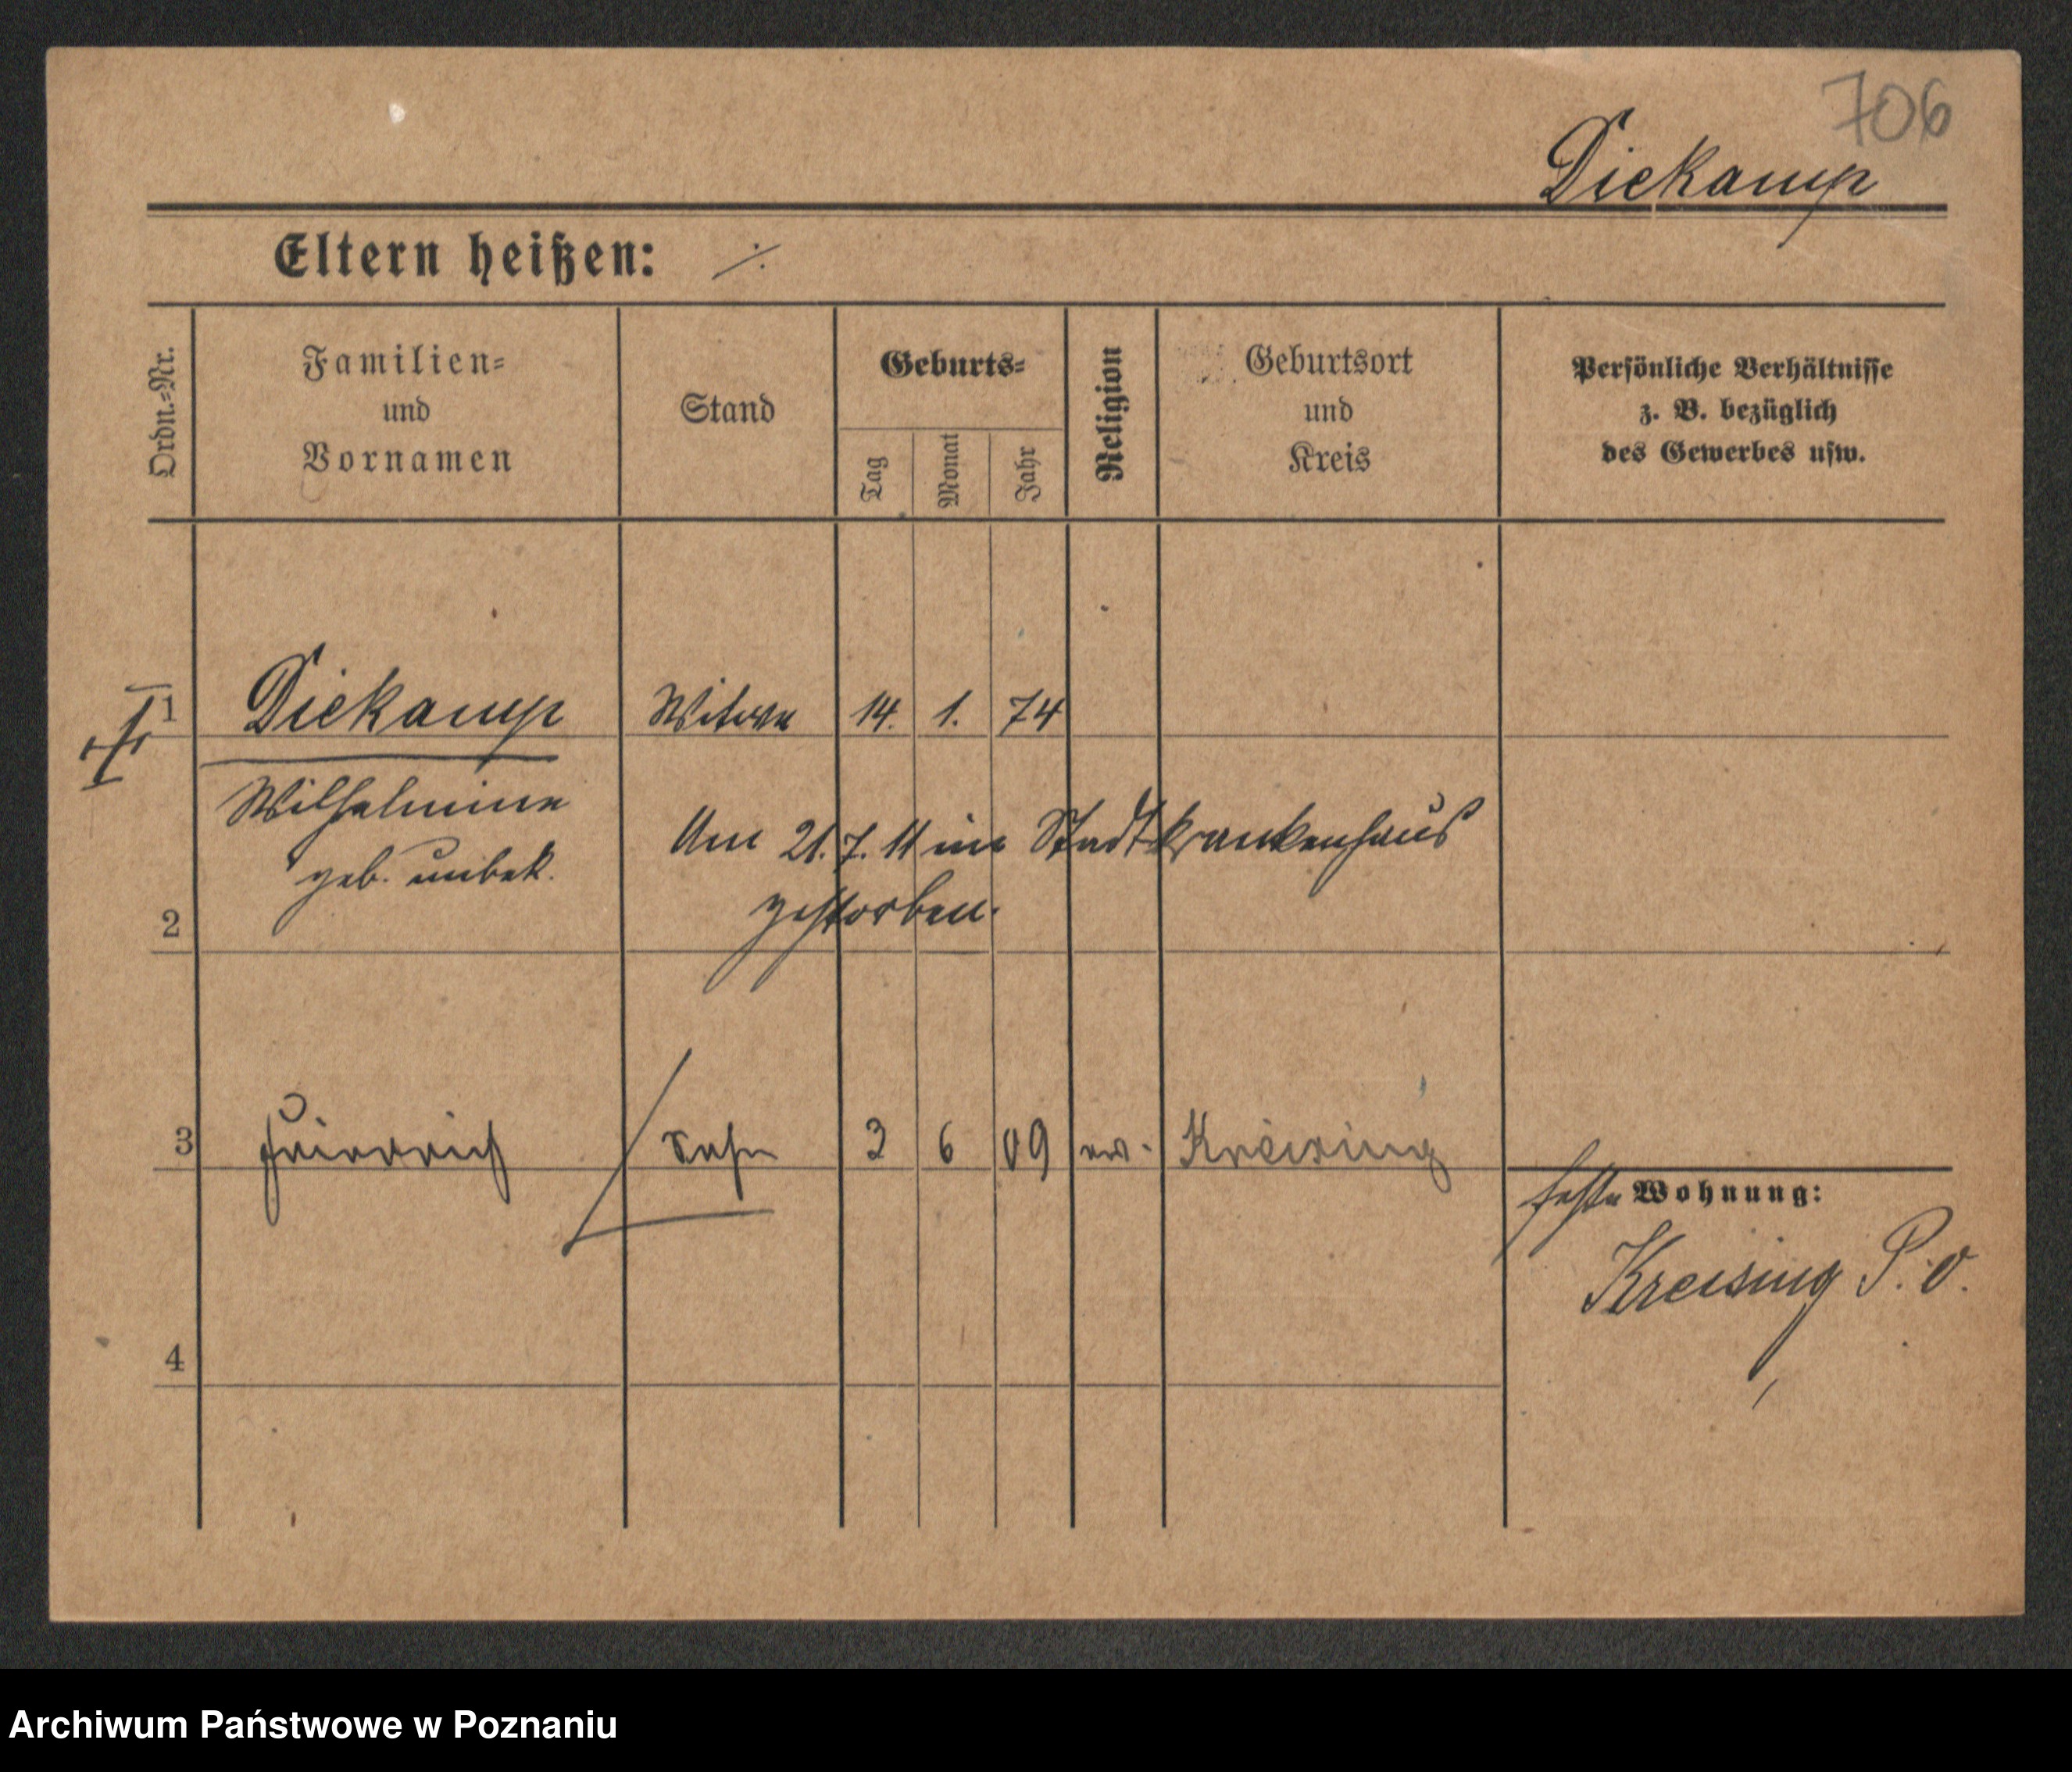 706
Diekamp
Eltern heißen: ∕.
Ordn.-Nr.
Familien-
und
Vornamen
Stand
Geburts-
Tag
Monat
Jahr
Religion
Geburtsort
und
Kreis
Persönliche Verhältnisse
z. B. bezüglich
des Gewerbes usw.
1 Diekamp Witwe 14. 1. 74
Wilhelmine
geb. unbek.
Am 21.7.11 im Stadtkrankenhaus
gestorben.
2
3 Friedrich Sohn 3 6 09 ev. Kreising
feste Wohnung:
Kreising P. O.
4
Archiwum Państwowe w Poznaniu